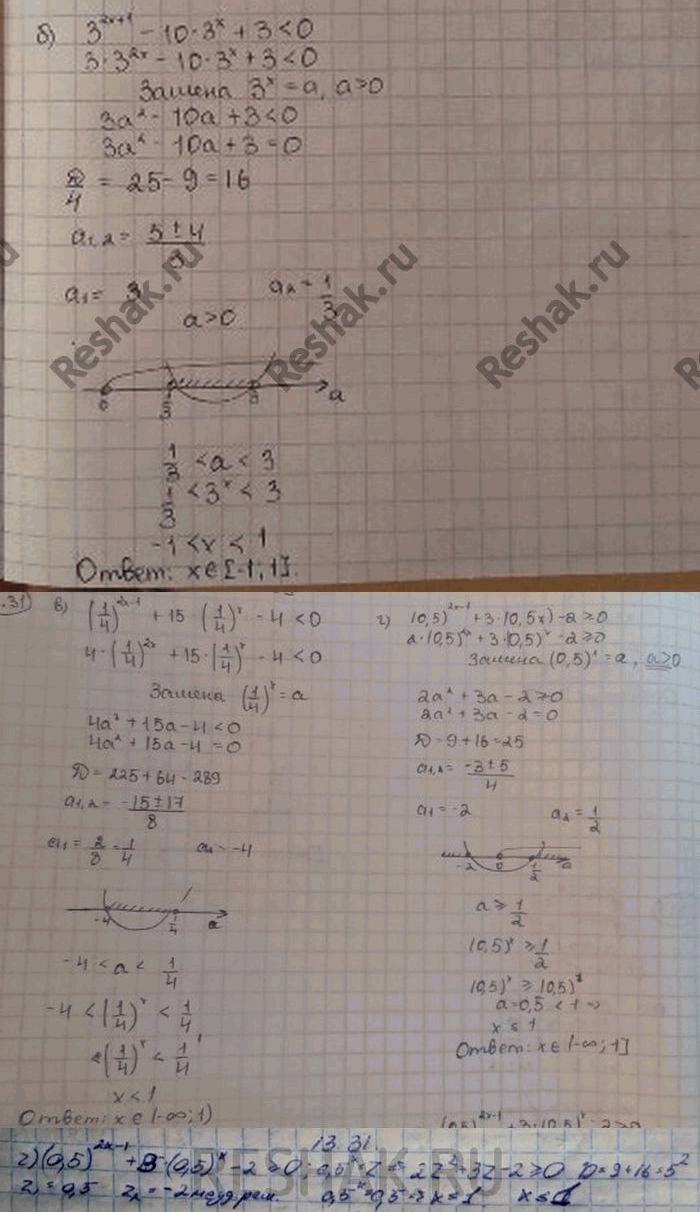 б) 3^(2x+1) - 10·3^x + 3 < 0
3·3^(2x) - 10·3^x + 3 < 0
Замена 3^x = a, a>0
3a² - 10a + 3 < 0
3a² - 10a + 3 = 0
D/4 = 25 - 9 = 16
a1,2 = (5 ± 4)/3
a1 = 3 a2 = 1/3
a>0
0 1/3 3 a
1/3 < a < 3
1/3 < 3^x < 3
-1 < x < 1
Ответ: x∈[-1;1].
.31) в) (1/4)^(2x-1) + 15·(1/4)^x - 4 < 0
4·(1/4)^(2x) + 15·(1/4)^x - 4 < 0
Замена (1/4)^x = a
4a² + 15a - 4 < 0
4a² + 15a - 4 = 0
D = 225 + 64 = 289
a1,2 = (-15 ± 17)/8
a1 = 2/8 = 1/4 a2 = -4
-4 1/4 a
-4 < a < 1/4
-4 < (1/4)^x < 1/4
(1/4)^x < 1/4^1
x < 1
Ответ: x∈(-∞;1)
г) (0,5)^(2x-1) + 3·(0,5x) - 2 ≥ 0
2·(0,5)^(2x) + 3·(0,5)^x - 2 ≥ 0
Замена (0,5)^x = a, a>0
2a² + 3a - 2 ≥ 0
2a² + 3a - 2 = 0
D = 9 + 16 = 25
a1,2 = (-3 ± 5)/4
a1 = -2 a2 = 1/2
-2 0 1/2 a
a ≥ 1/2
(0,5)^x ≥ 1/2
(0,5)^x ≥ (0,5)^1
a = 0,5 < 1 =>
x ≤ 1
Ответ: x∈(-∞;1]
13.31.
г) (0,5)^(2x-1) + 3·(0,5)^x - 2 ≥ 0; 0,5^x = z => 2z² + 3z - 2 ≥ 0 D = 9 + 16 = 5²
z1 = 0,5 z2 = -2 0,5^x = 0,5 => x = 1. x ≤ 1
Reshak.ru
Reshak.ru
Reshak.ru
RESHAK.RU